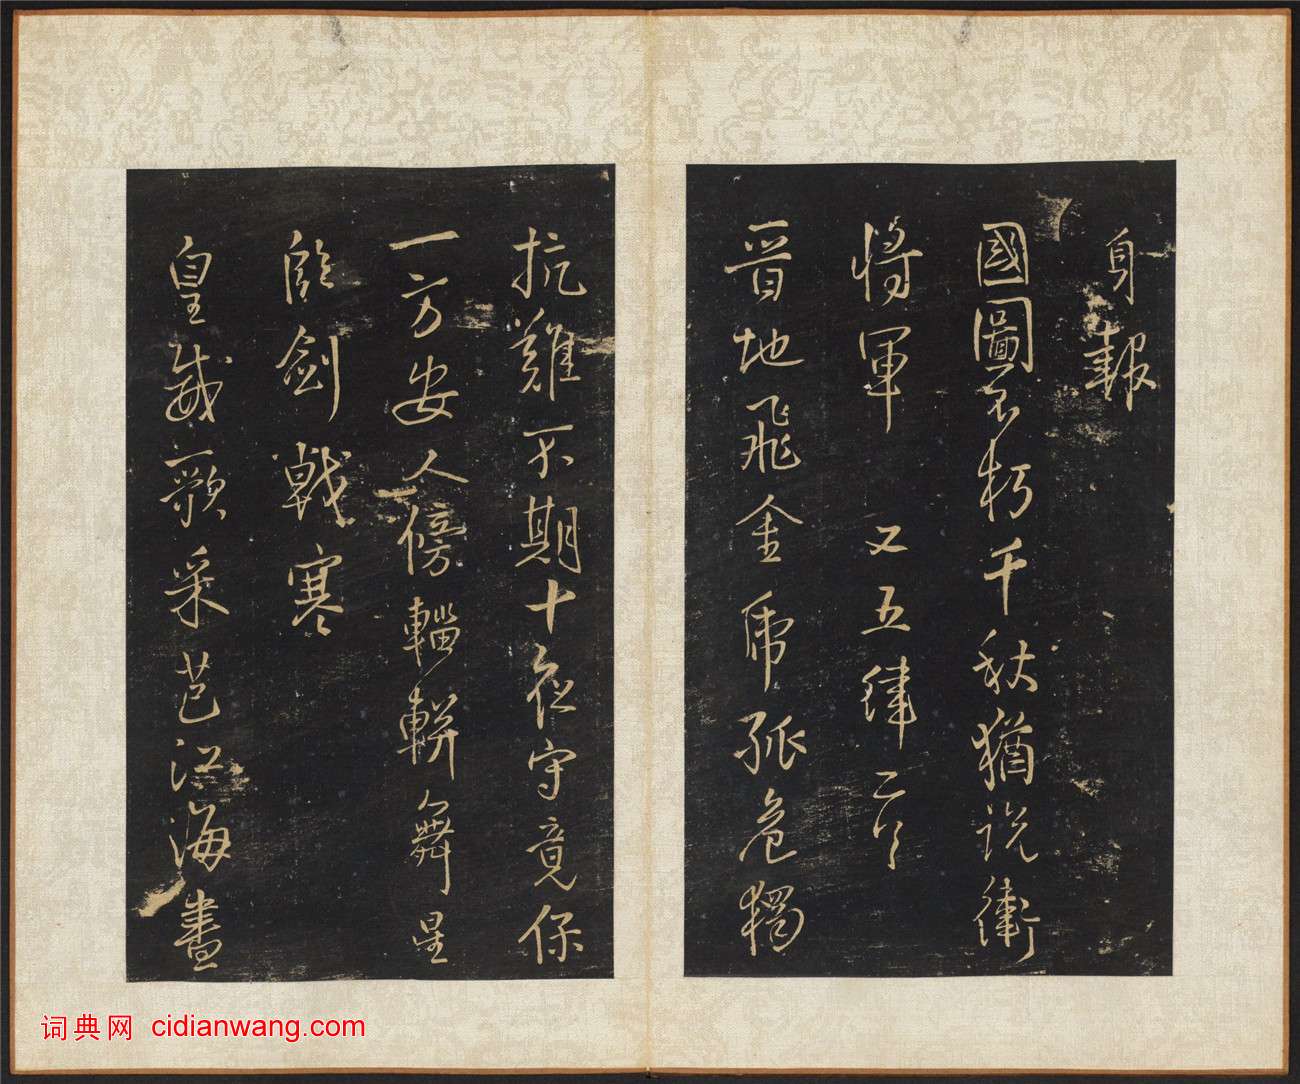 身報
國圖不朽千秋猶說衛
將軍 又五律二首
晉地飛金虎孤危獨
抗難不期十守竟保
一方安人傍輜軿舞星
臨劍戟寒
皇威歌采芑江海畫
词典网 cidianwang.com